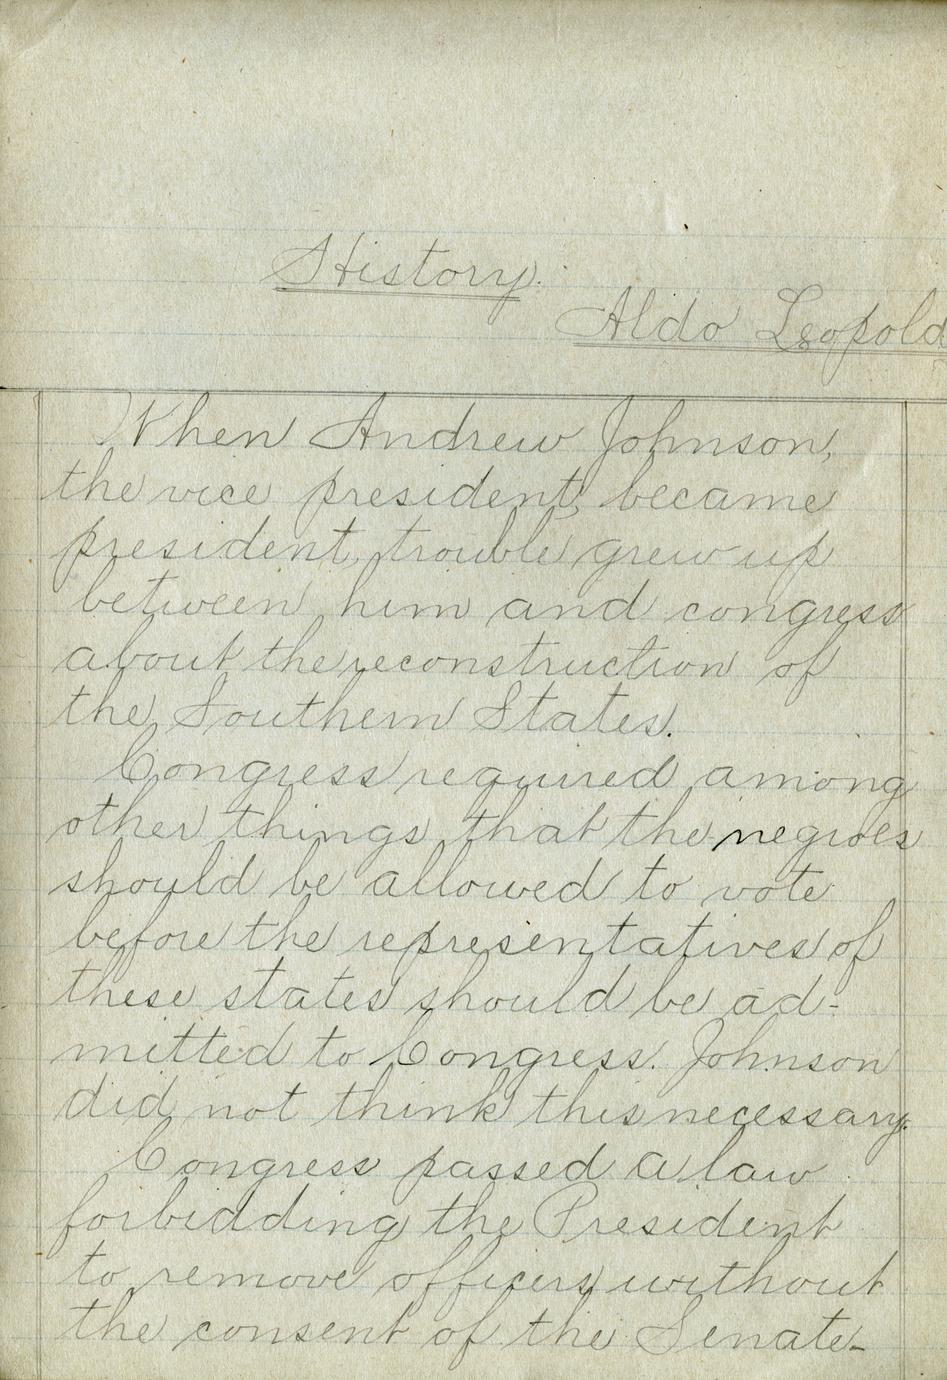 History.
Aldo Leopold
When Andrew Johnson,
the vice president, became
president, trouble grew up
between him and congress
about the reconstruction of
the Southern States.
Congress required among
other things that the negroes
should be allowed to vote
before the representatives of
these states should be ad-
mitted to Congress. Johnson
did not think this necessary.
Congress passed a law
forbidding the President
to remove officers without
the consent of the Senate-